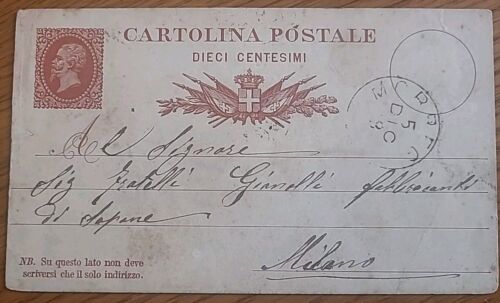 CARTOLINA POSTALE
DIECI CENTESIMI
5
DIC
Al Signore
Sig Fratelli Gianelli fabbricanti
di Sapone
Milano
NB. Su questo lato non deve
scriversi che il solo indirizzo.